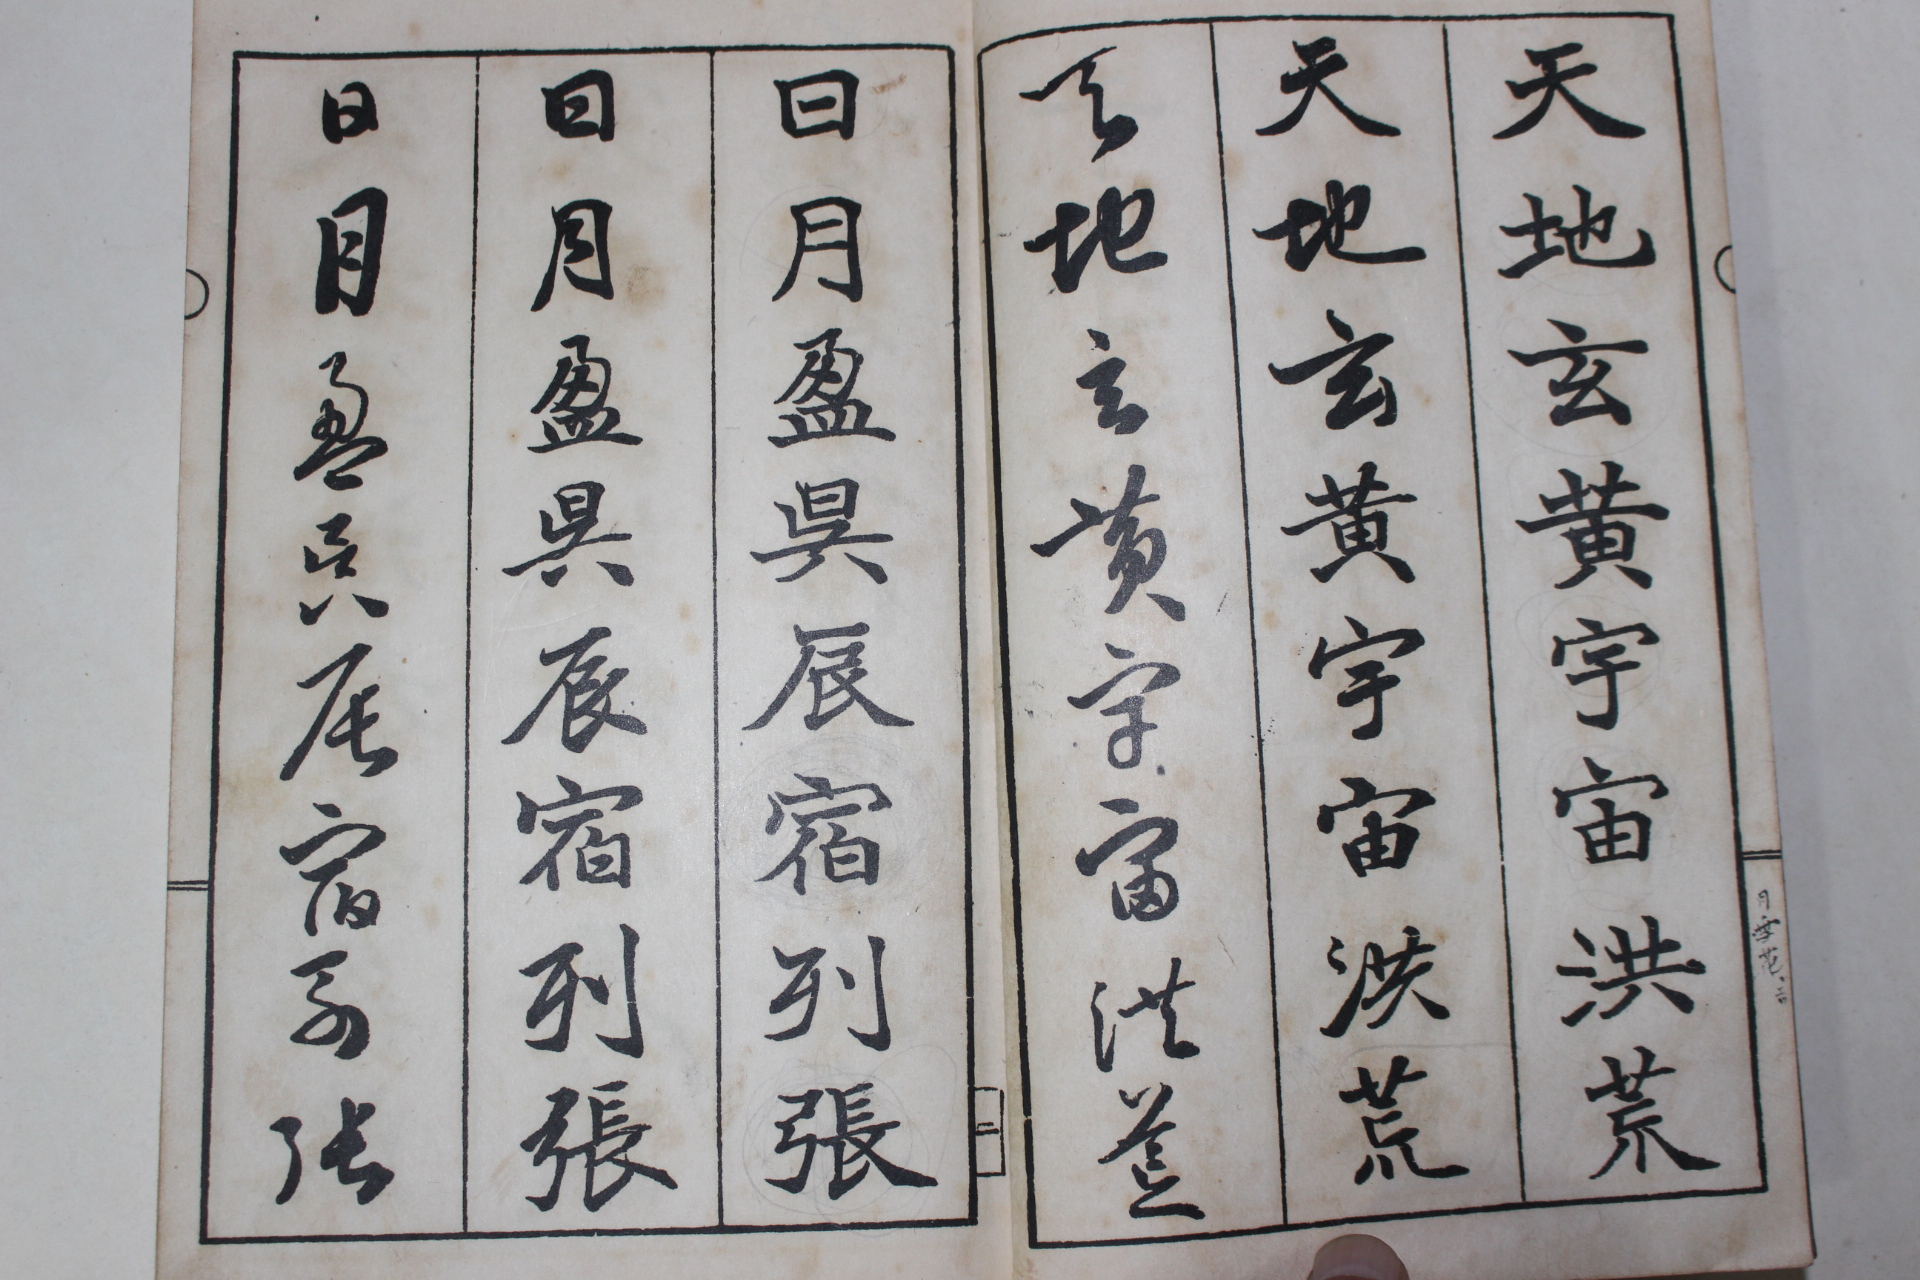 天地玄黄宇宙洪荒
天地玄黄宇宙洪荒
天地玄黄宇宙洪荒
日月盈昃辰宿列張
日月盈昃辰宿列張
日月盈昃辰宿列張
二